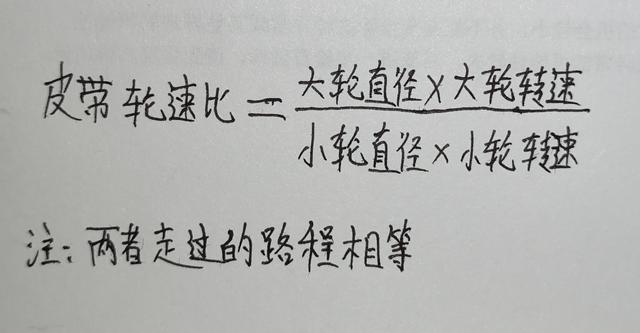 皮带轮速比=大轮直径×大轮转速/小轮直径×小轮转速
注:两者走过的路程相等